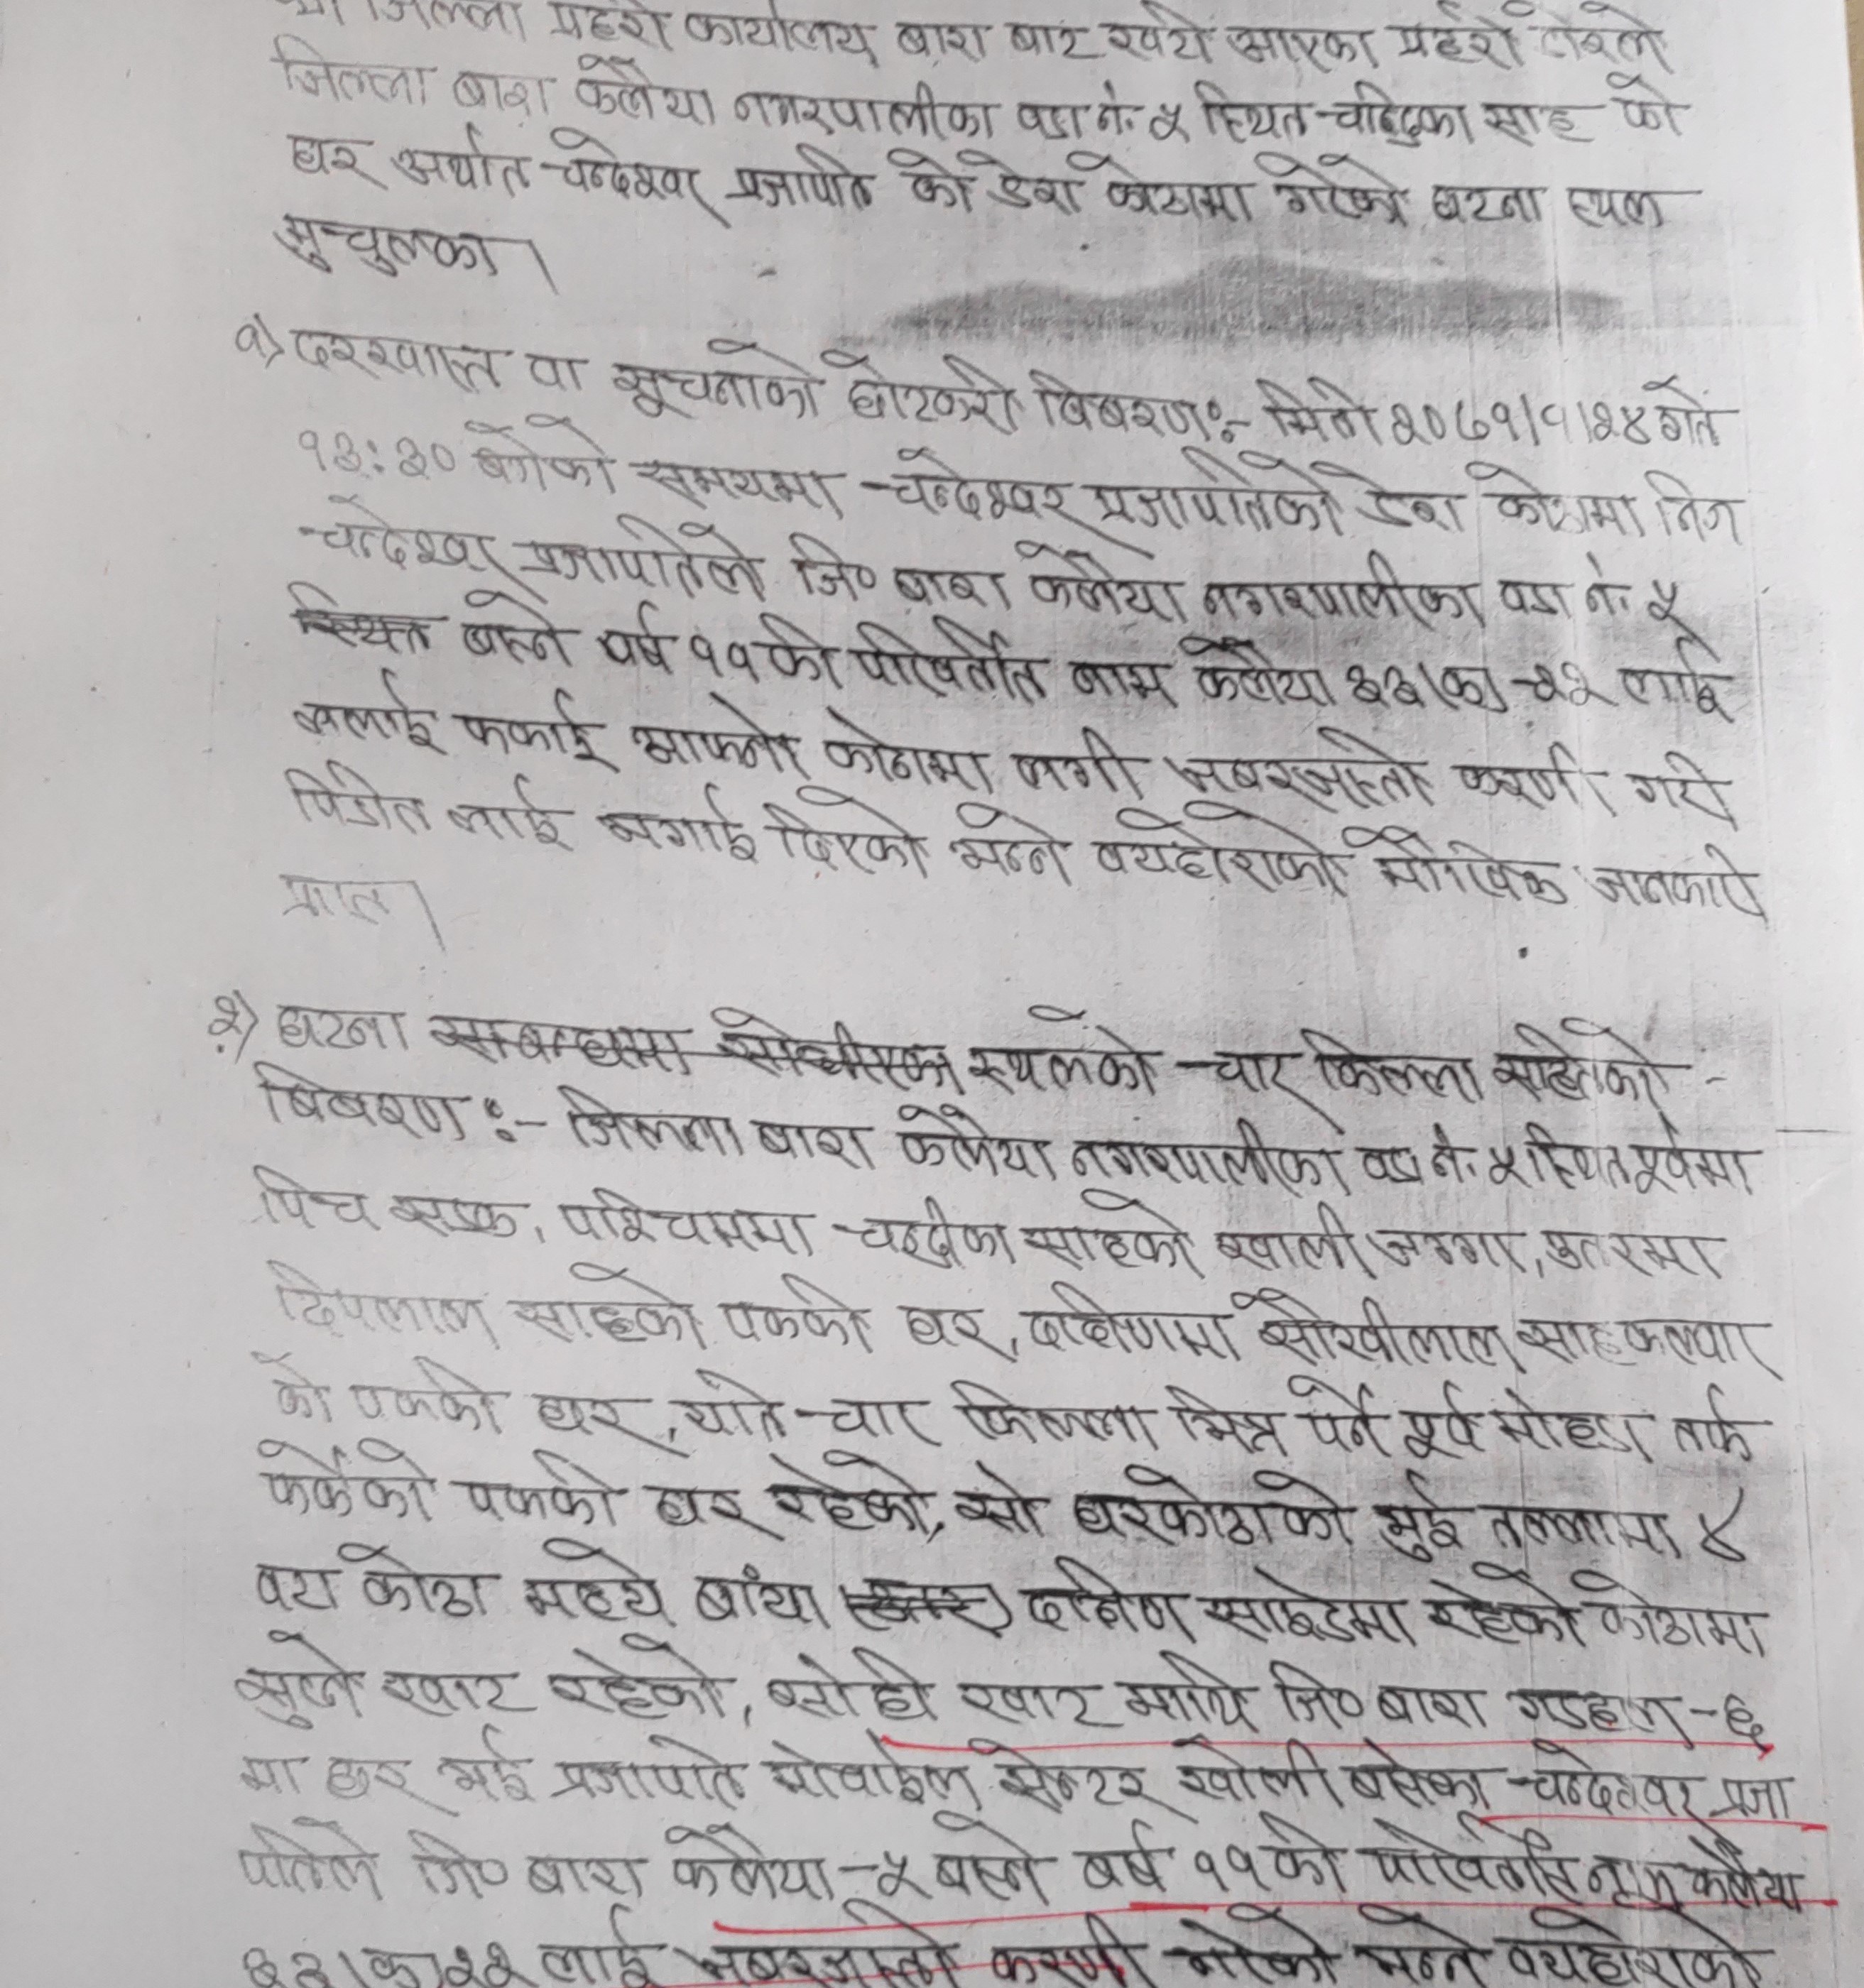 श्री जिल्ला प्रहरी कार्यालय बारा बाट खटी आएका प्रहरी टोलीले
जिल्ला बारा कलैया नगरपालीका वडा नं. ५ स्थित चन्द्रिका साह को
घर अर्थात चन्देश्वर प्रजापति को डेरा कोठामा गरेको घटना स्थल
मुचुल्का।
१) दरखास्त वा सूचनाको छोटकरी बिबरण:- मिति २०७१।९।२४ गते
१३:३० बजेको समयमा चन्देश्वर प्रजापतिको डेरा कोठामा निज
चन्देश्वर प्रजापतिले जि० बारा कलैया नगरपालीका वडा नं. ५
स्थित बस्ने वर्ष ११ की परिवर्तीत नाम कलैया ३३(क) २२ लाई
ललाई फकाई आफ्नो कोठामा लगी जबरजस्ती करणी गरी
पिडीत लाई भगाई दिएको भन्ने व्यहोराको मौखिक जानकारी
प्राप्त।
२) घटना सम्बन्धमा स्थलको चार किल्ला सहितको
बिबरण:- जिल्ला बारा कलैया नगरपालीका वडा नं. ५ स्थित पूर्वमा
पिच सडक, पश्चिममा चन्द्रीका साहको खाली जग्गा, उतरमा
दिपलाल साहको पक्की घर, दक्षिणमा सोखीलाल साह कलवार
को पक्की घर, यति चार किल्ला भित्र पर्ने पूर्व मोहडा तर्फ
फर्केको पक्की घर रहेको, सो घरकोठाको भुई तल्लामा ४
वटा कोठा मध्ये बांया दक्षिण साईडमा रहेको कोठामा
सुत्ने खाट रहेको, सोही खाट माथि जि० बारा गडहल-६
मा घर भई प्रजापति मोबाईल सेन्टर खोली बसेका चन्देश्वर प्रजा
पतिले जि० बारा कलैया-५ बस्ने बर्ष ११ की परिवर्तीत नाम कलैया
३३(क)२२ लाई जबरजस्ती करणी गरेको भन्ने व्यहोराको